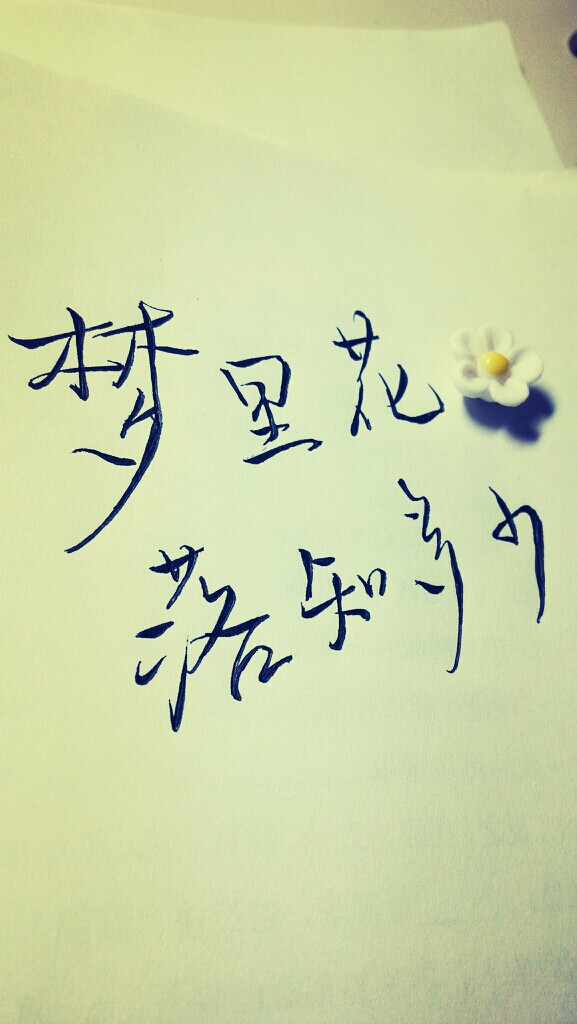 梦里花
落知多少